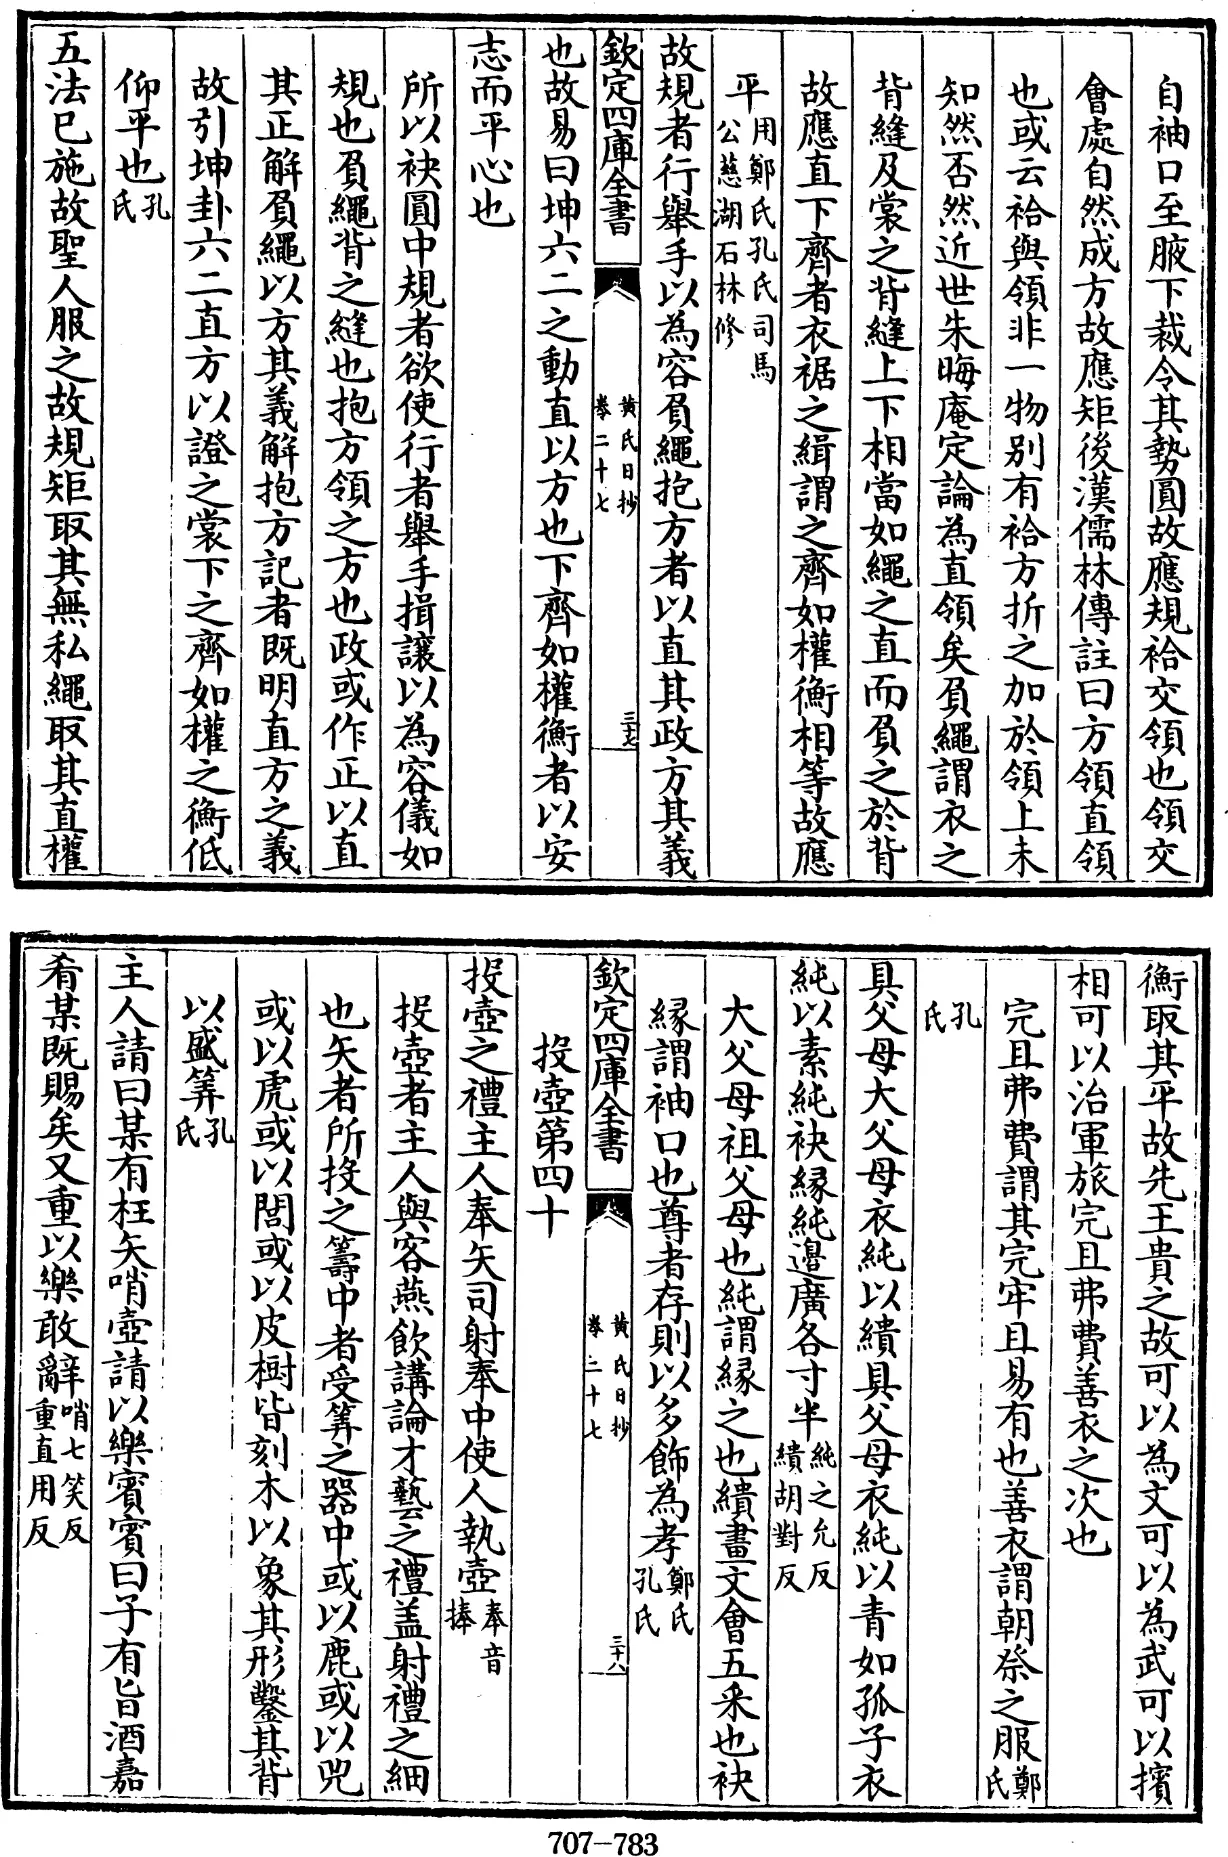 自袖口至腋下裁令其勢圓故應規袷交領也領交
會處自然成方故應矩後漢儒林傳註曰方領直領
也或云袷與領非一物别有袷方折之加於領上未
知然否然近世朱晦庵定論為直領矣負繩謂衣之
背縫及裳之背縫上下相當如繩之直而負之於背
故應直下齊者衣裾之緝謂之齊如權衡相等故應
平用鄭氏孔氏司馬公慈湖石林修
故規者行舉手以為容負繩抱方者以直其政方其義
欽定四庫全書
黄氏日抄
卷二十七
三十七
也故易曰坤六二之動直以方也下齊如權衡者以安
志而平心也
所以袂圓中規者欲使行者舉手揖讓以為容儀如
規也負繩背之縫也抱方領之方也政或作正以直
其正解負繩以方其義解抱方記者既明直方之義
故引坤卦六二直方以證之裳下之齊如權之衡低
仰平也孔氏
五法已施故聖人服之故規矩取其無私繩取其直權
衡取其平故先王貴之故可以為文可以為武可以擯
相可以治軍旅完且弗費善衣之次也
完且弗費謂其完牢且易有也善衣謂朝祭之服鄭氏
孔氏
具父母大父母衣純以繢具父母衣純以青如孤子衣
純以素純袂緣純邊廣各寸半純之允反繢胡對反
大父母祖父母也純謂緣之也繢畫文會五采也袂
緣謂袖口也尊者存則以多飾為孝鄭氏孔氏
欽定四庫全書
黄氏日抄
卷二十七
三十八
投壺第四十
投壺之禮主人奉矢司射奉中使人執壺奉音捧
投壺者主人與客燕飲講論才藝之禮盖射禮之細
也矢者所投之籌中者受筭之器中或以鹿或以兕
或以虎或以閭或以皮樹皆刻木以象其形鑿其背
以盛筭孔氏
主人請曰某有枉矢哨壺請以樂賓賓曰子有旨酒嘉
肴某既賜矣又重以樂敢辭哨七笑反重直用反
707-783